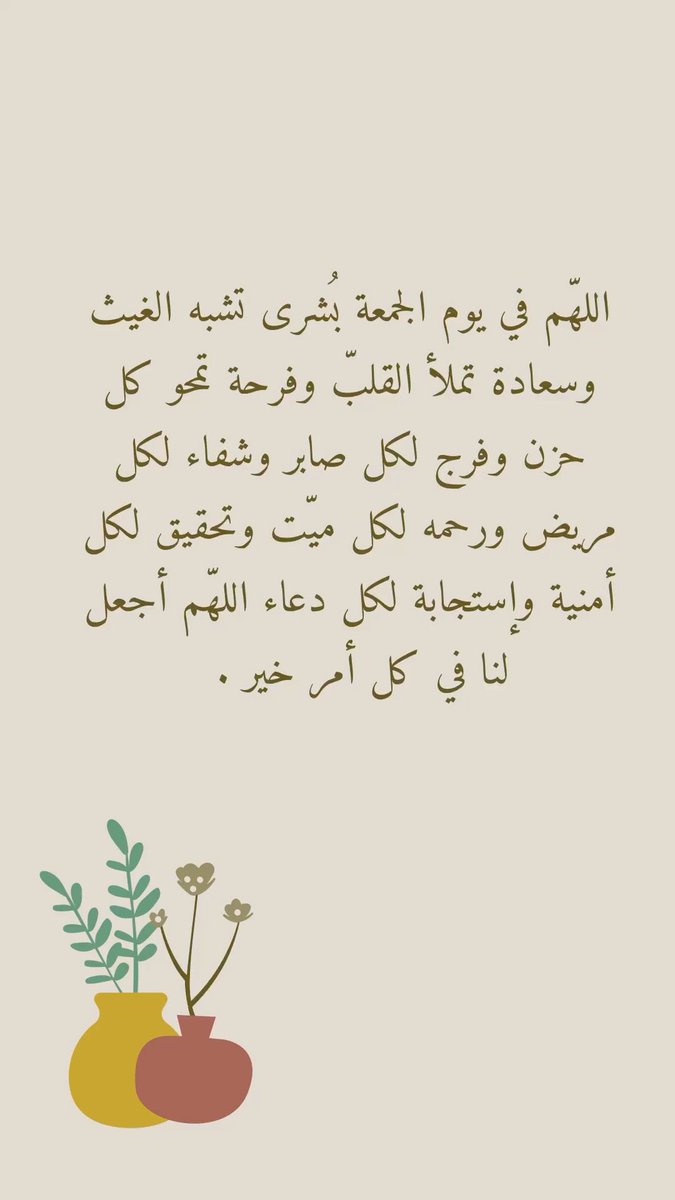 اللهّم في يوم الجمعة بُشرى تشبه الغيث
وسعادة تملأ القلبّ وفرحة تمحو كل
حزن وفرج لكل صابر وشفاء لكل
مريض ورحمه لكل ميّت وتحقيق لكل
أمنية وإستجابة لكل دعاء اللهّم أجعل
لنا في كل أمر خير .